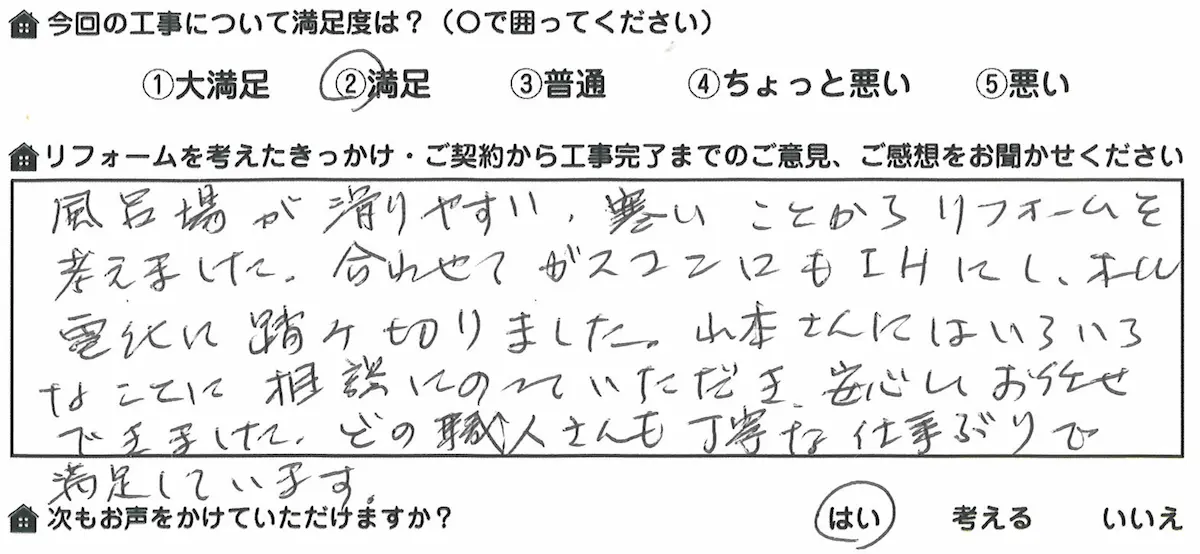 今回の工事について満足度は？（〇で囲ってください）
①大満足 ②満足 ③普通 ④ちょっと悪い ⑤悪い
リフォームを考えたきっかけ・ご契約から工事完了までのご意見、ご感想をお聞かせください
風呂場が滑りやすい、寒いことからリフォームを
考えました。合わせてガスコンロもIHにし、オール
電化に踏み切りました。山本さんにはいろいろ
なことに相談にのっていただき、安心してお任せ
できました。どの職人さんも丁寧な仕事ぶりで
満足しています。
次もお声をかけていただけますか？ はい 考える いいえ